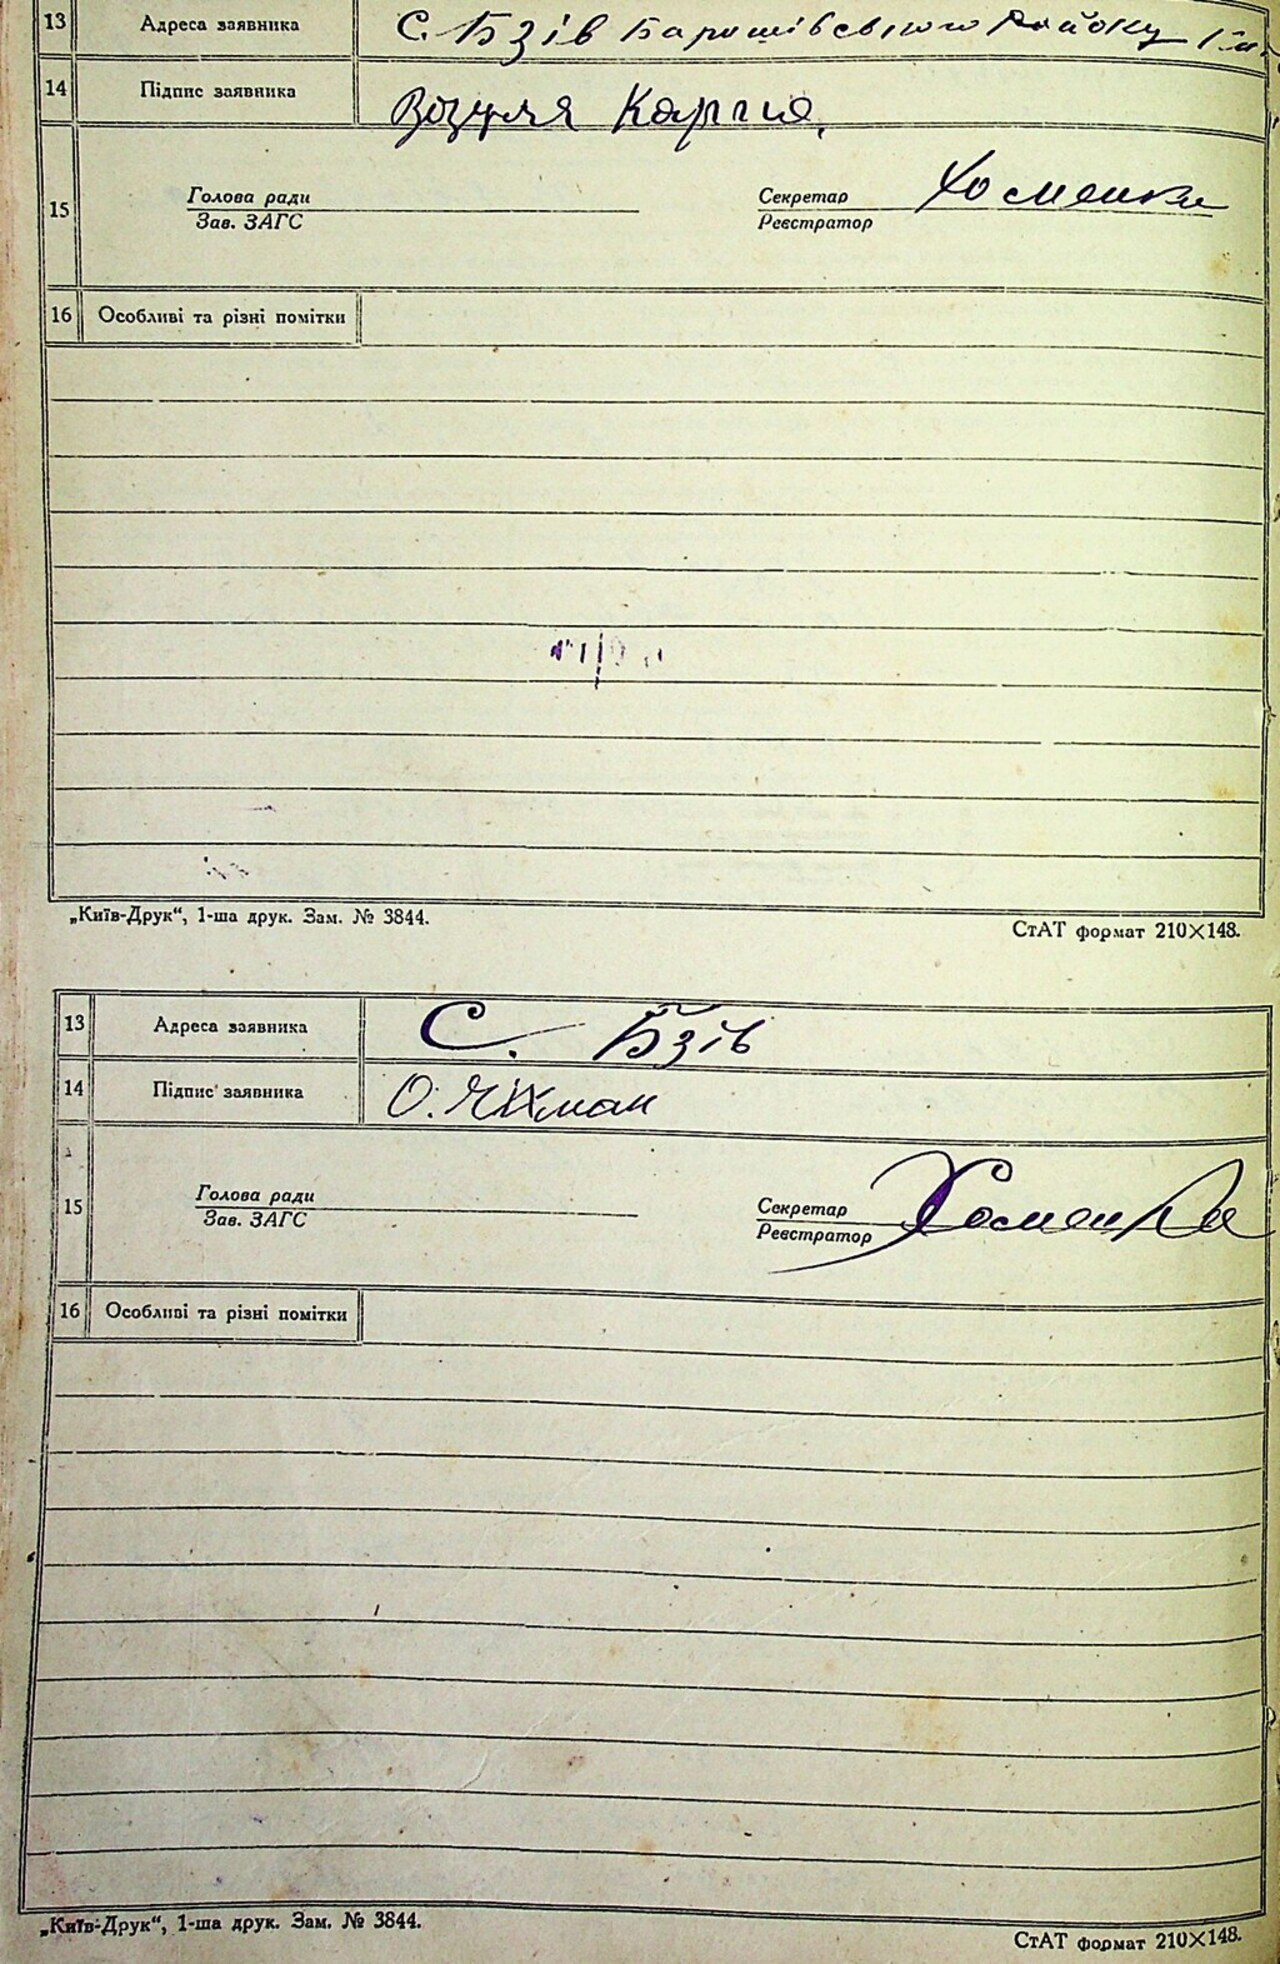 13 Адреса заявника С. Бзів Баришівського Району
14 Підпис заявника
15 Голова ради Секретар Хоменко
Зав. ЗАГС Реєстратор
16 Особливі та різні помітки
„Київ-Друк“, 1-ша друк. Зам. № 3844. СтАТ формат 210×148.
13 Адреса заявника С. Бзів
14 Підпис заявника О.
15 Голова ради Секретар Хоменко
Зав. ЗАГС Реєстратор
16 Особливі та різні помітки
„Київ-Друк“, 1-ша друк. Зам. № 3844. СтАТ формат 210×148.